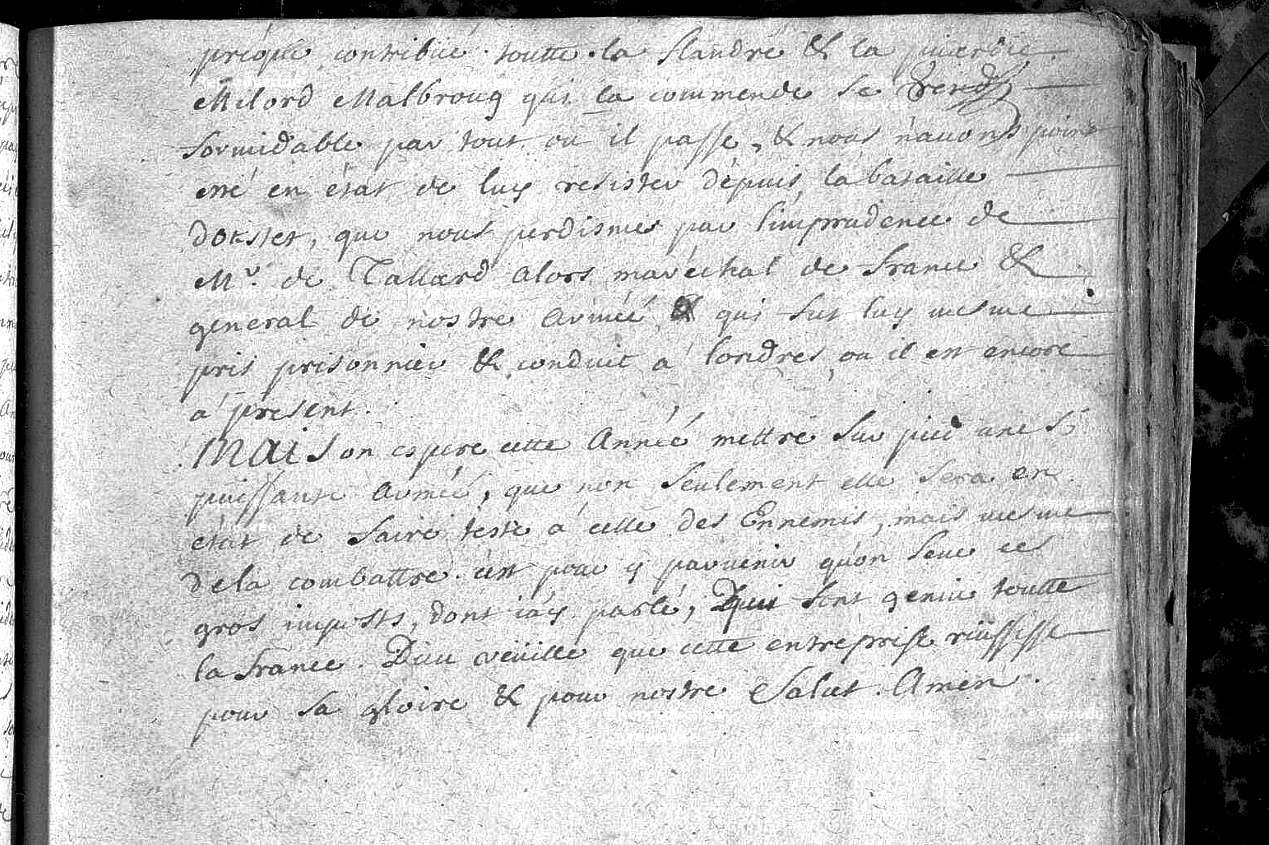 presque contribüe toutte la flandre & la picardie
Milord Malbroug qui la commende se rend
formidable par tout ou il passe, & nous nauons point
esté en état de luy resister dépuis la bataille
d'okstet, que nous perdismes par l'imprudence de
Mr. de Tallard alors maréchal de france &
general de nostre armée & qui fut luy mesme
pris prisonnier & conduit a londres ou il est encore
a present.
Mais on espere cette Année mettre sur pied une si
puissante armée, que non seulement elle sera en
état de faire teste a celle des Ennemis, mais mesme
de la combattre. c'est pour y paruenir qu'on leue ces
gros imposts, dont i'ay parlé, & qui font gemir toutte
la france. Dieu veüille que cette entreprise réüssisse
pour sa gloire & pour nostre Salut. Amen.